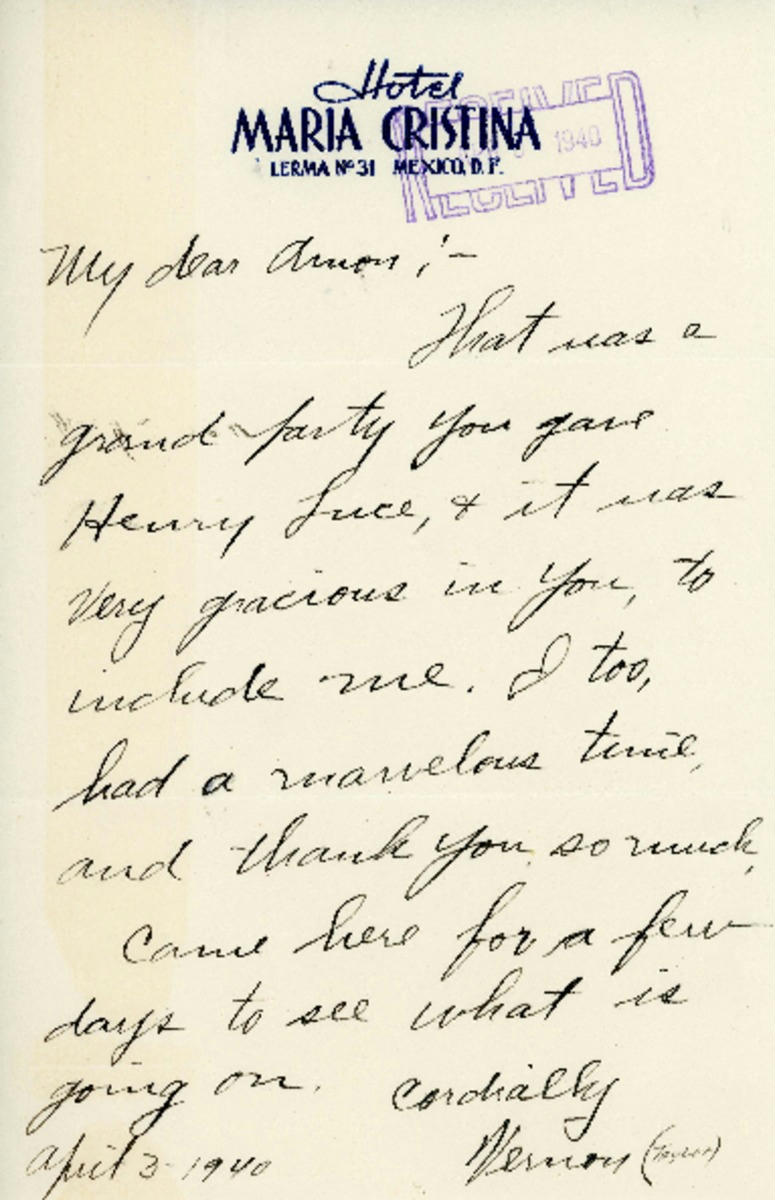 Hotel
MARIA CRISTINA
LERMA Nº 31 MEXICO, D. F.
RECEIVED
1940
RECEIVED
My dear Amon ;-
That was a
grand party you gave
Henry Luce, & it was
very gracious in you, to
include me. I too,
had a marvelous time,
and thank you so much,
Came here for a few
days to see what is
going on. Cordially
April 3 - 1940 Vernon